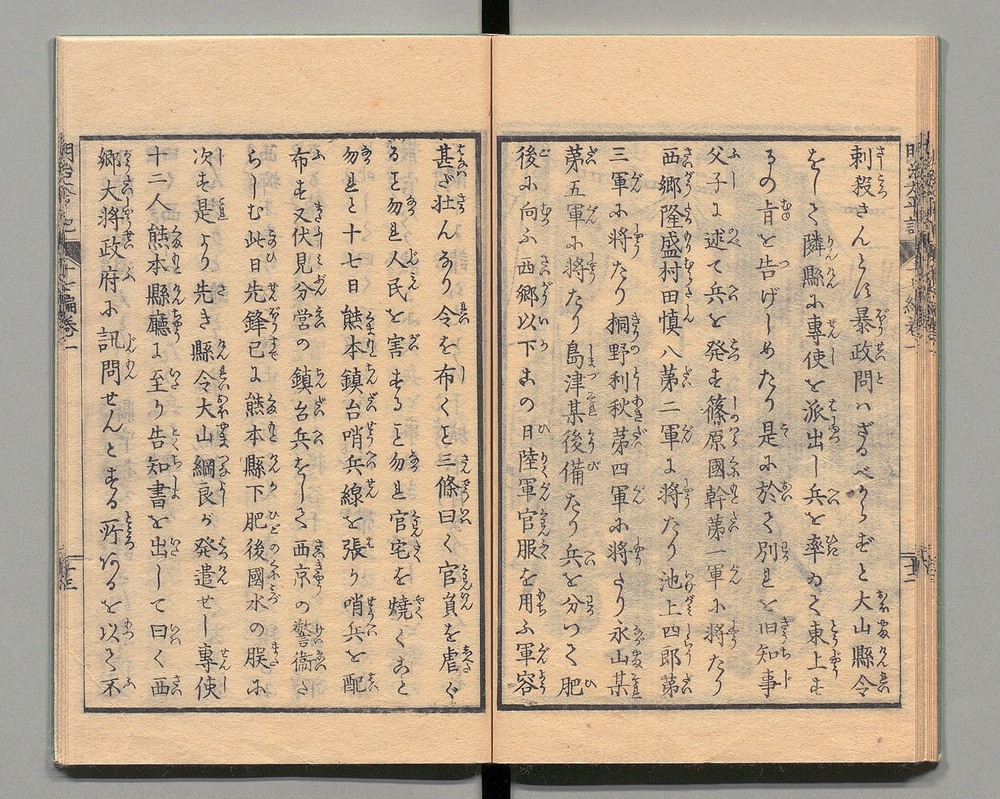 刺殺さんとす暴政問ハざるべからずと大山縣令
をして隣縣に專使を派出し兵を率ゐて東上す
るの旨を告げしめたり是に於て別れを旧知事
父子に述て兵を発す篠原國幹第一軍に将たり
西郷隆盛村田慎八第二軍に将たり池上四郎第
三軍に将たり桐野利秋第四軍に将たり永山某
第五軍に将たり島津某後備たり兵を分つて肥
後に向ふ西郷以下この日陸軍官服を用ふ軍容
甚だ壮んなり令を布くこと三條曰く官負を虐ぐ
ること勿れ人民を害すること勿れ官宅を燒くこと
勿れと十七日熊本鎮台哨兵線を張り哨兵を配
布す又伏見分營の鎮台兵をして西京の警衞さ
らしむ此日先鋒已に熊本縣下肥後國水の胯に
次す是より先き縣令大山綱良が発遣せし專使
十二人熊本縣廳に至り告知書を出して曰く西
郷大将政府に訊問せんとする所あるを以て不
十三